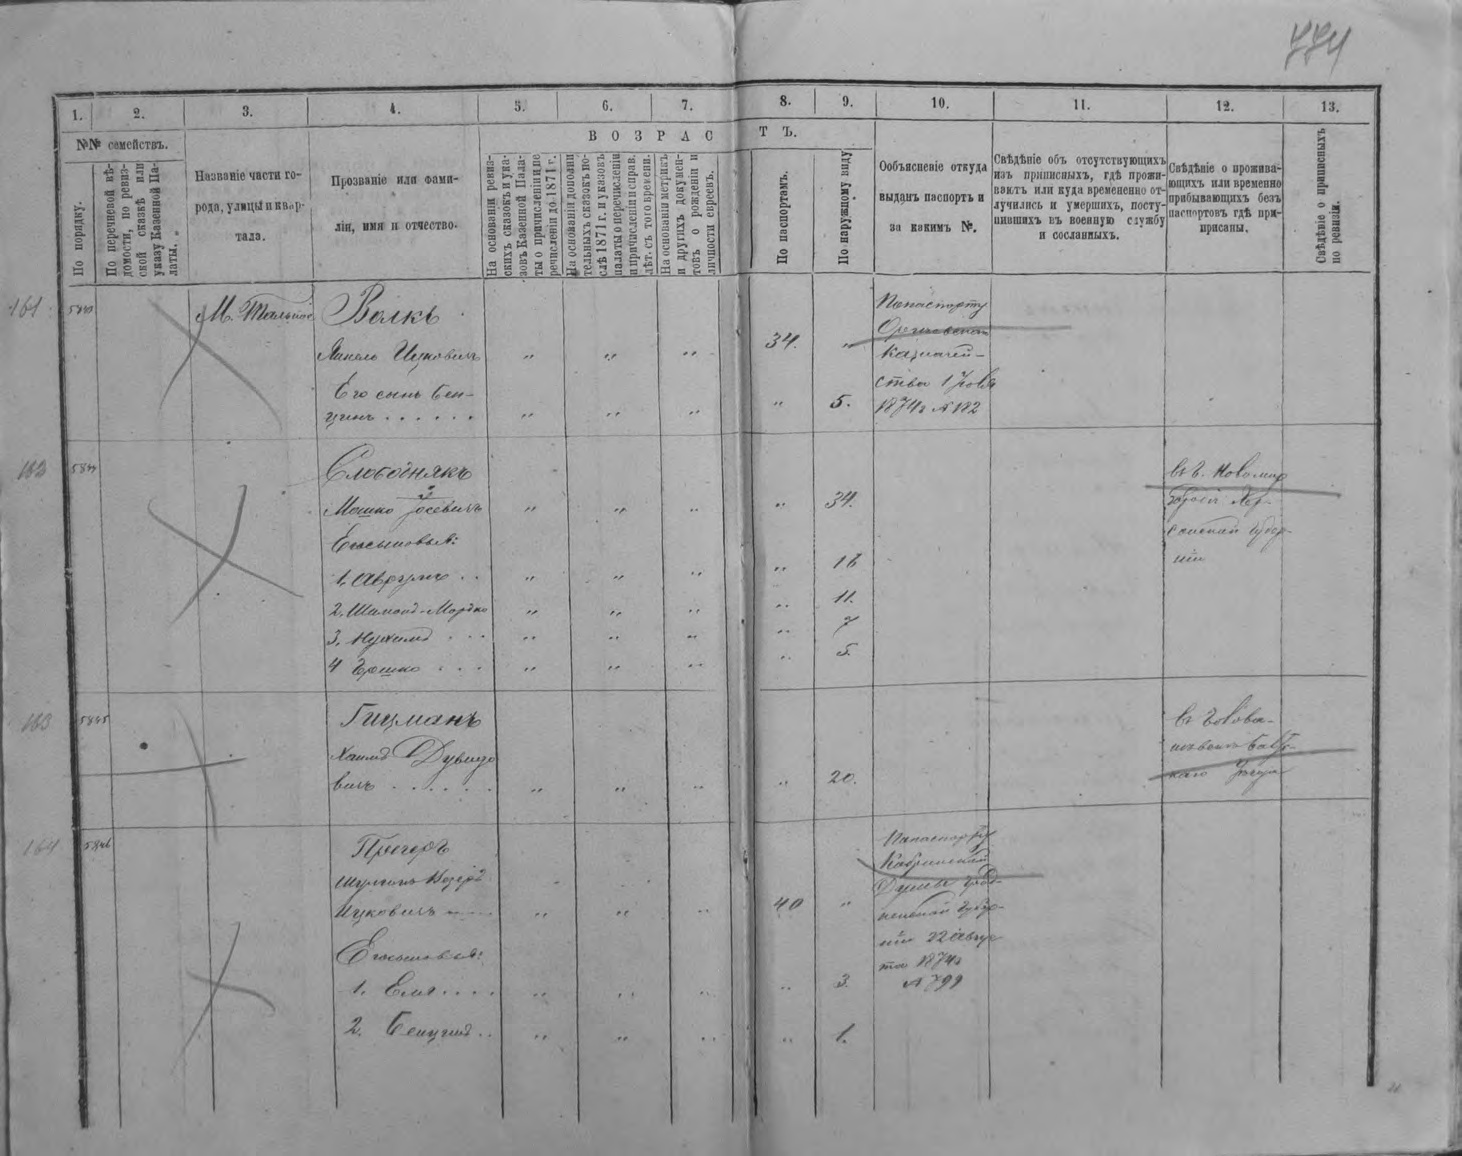 774
1. 2. 3. 4. 5. 6. 7. 8. 9. 10. 11. 12. 13.
№№ семействъ.
По порядку.
По перечневой вѣ-
домости, по ревиз-
ской сказкѣ или
указу Казенной Па-
латы.
Названіе части го-
рода, улицы и квар-
тала.
Прозваніе или фами-
лія, имя и отчество.
ВОЗРАСТЪ.
На основаніи ревиз-
скихъ сказокъ и ука-
зовъ Казенной Пала-
ты о причисленіи и пе
речисленіи до 1871 г.
На основаніи дополни
тельныхъ сказокъ по-
слѣ 1871 г. и указовъ
палаты о перечисленіи
и причисленіи и справ.
лѣт. съ того времени.
На основаніи метрикъ
и другихъ докумен-
товъ о рожденіи и
личности евреевъ.
По паспортамъ.
По наружному виду
Ообъясненіе откуда
выданъ паспортъ и
за какимъ №.
Свѣдѣніе объ отсутствующихъ
изъ приписныхъ, гдѣ прожи-
ваютъ или куда временено от-
лучились и умершихъ, посту-
пившихъ въ военную службу
и сосланныхъ.
Свѣдѣніе о прожива-
ющихъ или временно
прибывающихъ безъ
паспортовъ гдѣ при-
писаны.
Свѣдѣніе о приписныхъ
по ревизіи.
161
М. Тальное
Волкъ
Янкель Ицковичъ " " " 34. "
Его сынъ Бен-
ціонъ . . . . . . " " " " 5.
По паспорту
Казначей-
ства
1874 г №182
162
Слободнякъ
Мошко Іосевичъ " " " " 34.
Его сыновья:
1. Аврумъ . . " " " " 16
2. Шимонъ-Мордко " " " " 11.
3. Нухимъ . . . " " " " 7
4 Ершко . . . " " " " 5.
въ г. Новомир
городѣ Хер-
сонской Губер-
ніи
163
5845
Гицманъ
Хаимъ Дувидо
вичъ . . . . . . " " " " 20.
въ Голова-
невскѣ Балт-
каго Уѣзда
164
5846
Прегеръ
Ицковичъ " " " 40 "
Его сыновья:
1. Еля . . . . " " " " 3.
2. Бенціонъ . . " " " " 1.
По паспорту
Кобринской
Думы Грод-
ненской Губер-
ніи 22 Авгус
та 1874 г
№ 799